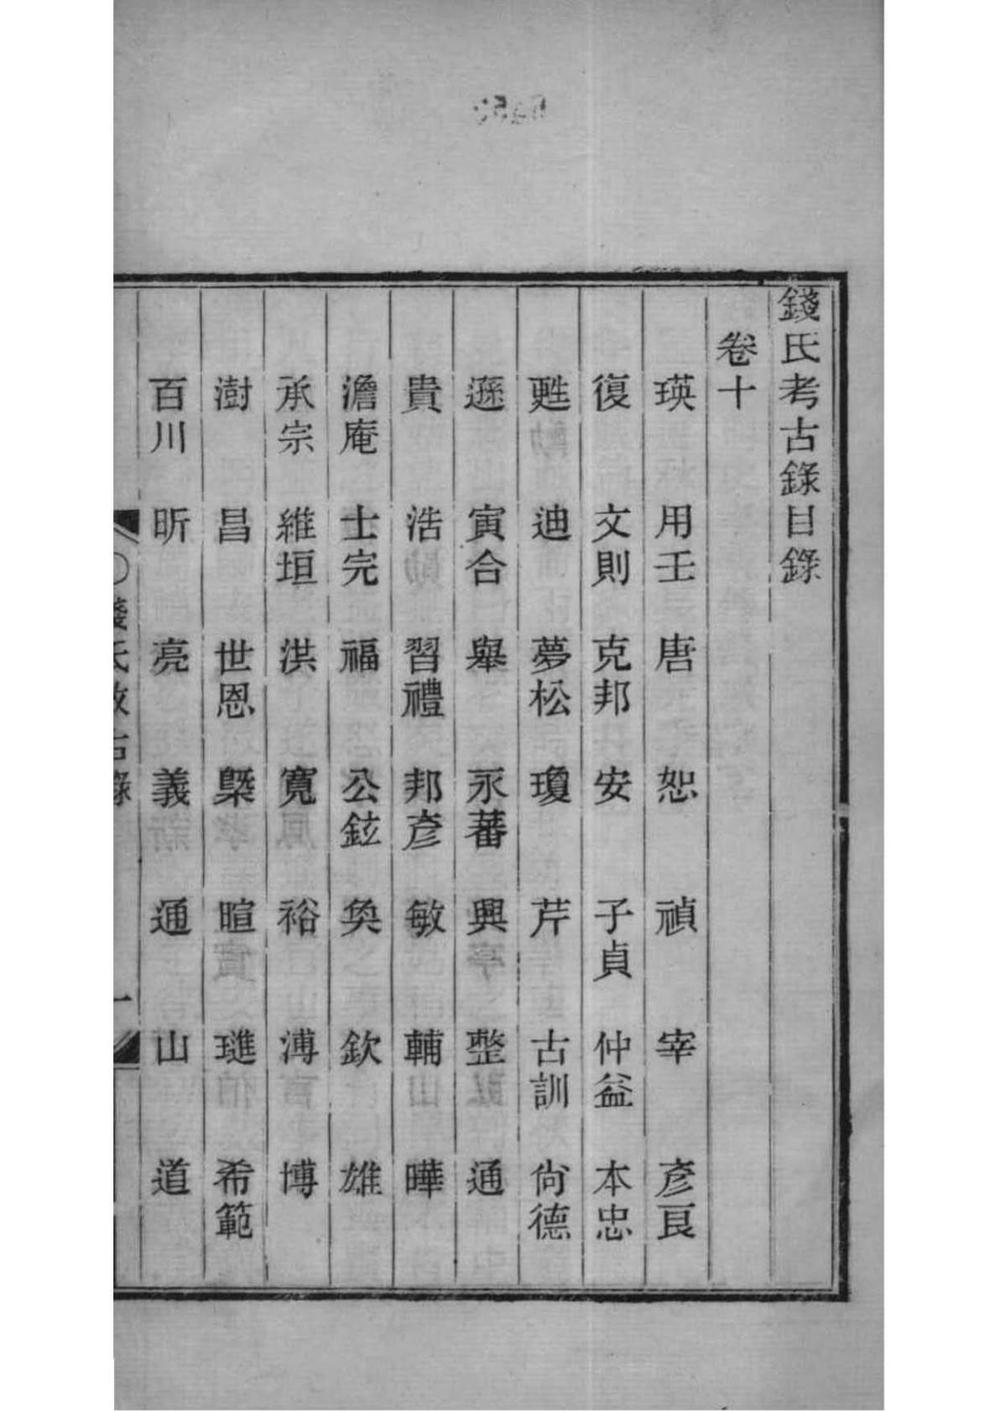 錢氏考古錄目錄
卷十
瑛 用壬 唐 恕 禎 宰 彥良
復 文則 克邦 安 子貞 仲益 本忠
甦 迪 夢松 瓊 芹 古訓 尙德
遜 寅合 舉 永蕃 興 整 通
貴 浩 習禮 邦彥 敏 輔 曄
澹庵 士完 福 公鉉 奐 欽 雄
承宗 維垣 洪 寬 裕 溥 博
澍 昌 世恩 槩 暄 璡 希範
百川 昕 亮 義 通 山 道
錢氏攷古錄 一